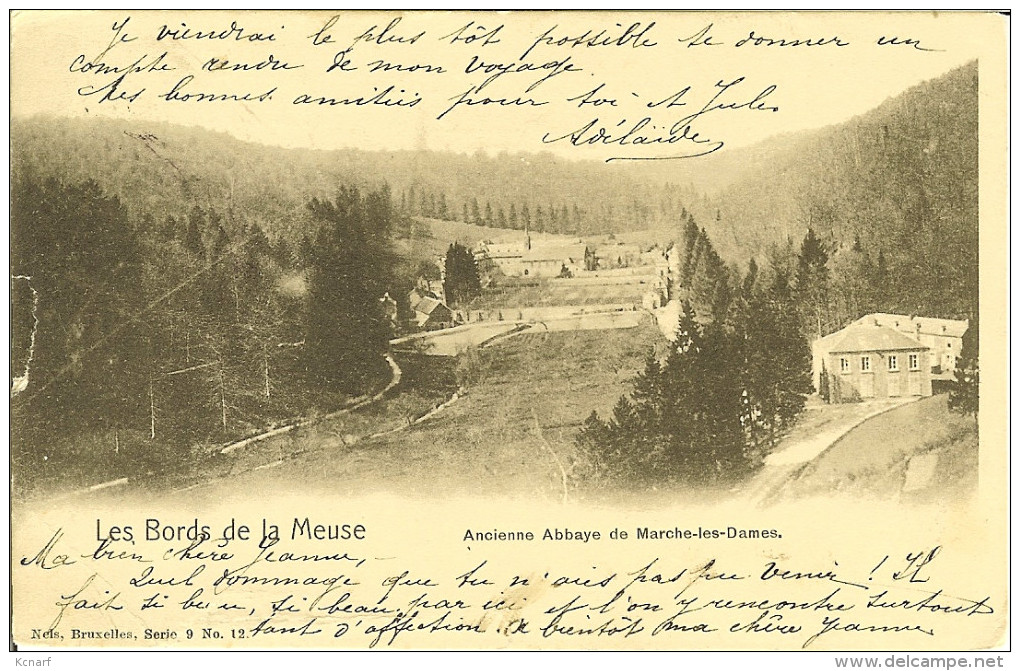 Je viendrai le plus tôt possible te donner un
compte rendu de mon voyage.
Mes bonnes amitiés pour toi et Jules
Adélaïde
Les Bords de la Meuse
Ancienne Abbaye de Marche-les-Dames.
Ma bien chère Jeanne,
Quel dommage que tu n'ais pas pu venir! Il
fait si beau, si beau par ici et l'on y rencontre surtout
tant d'affection. A bientôt ma chère Jeanne
Nels, Bruxelles, Serie 9 No. 12.
Kcnarf
www.delcampe.net